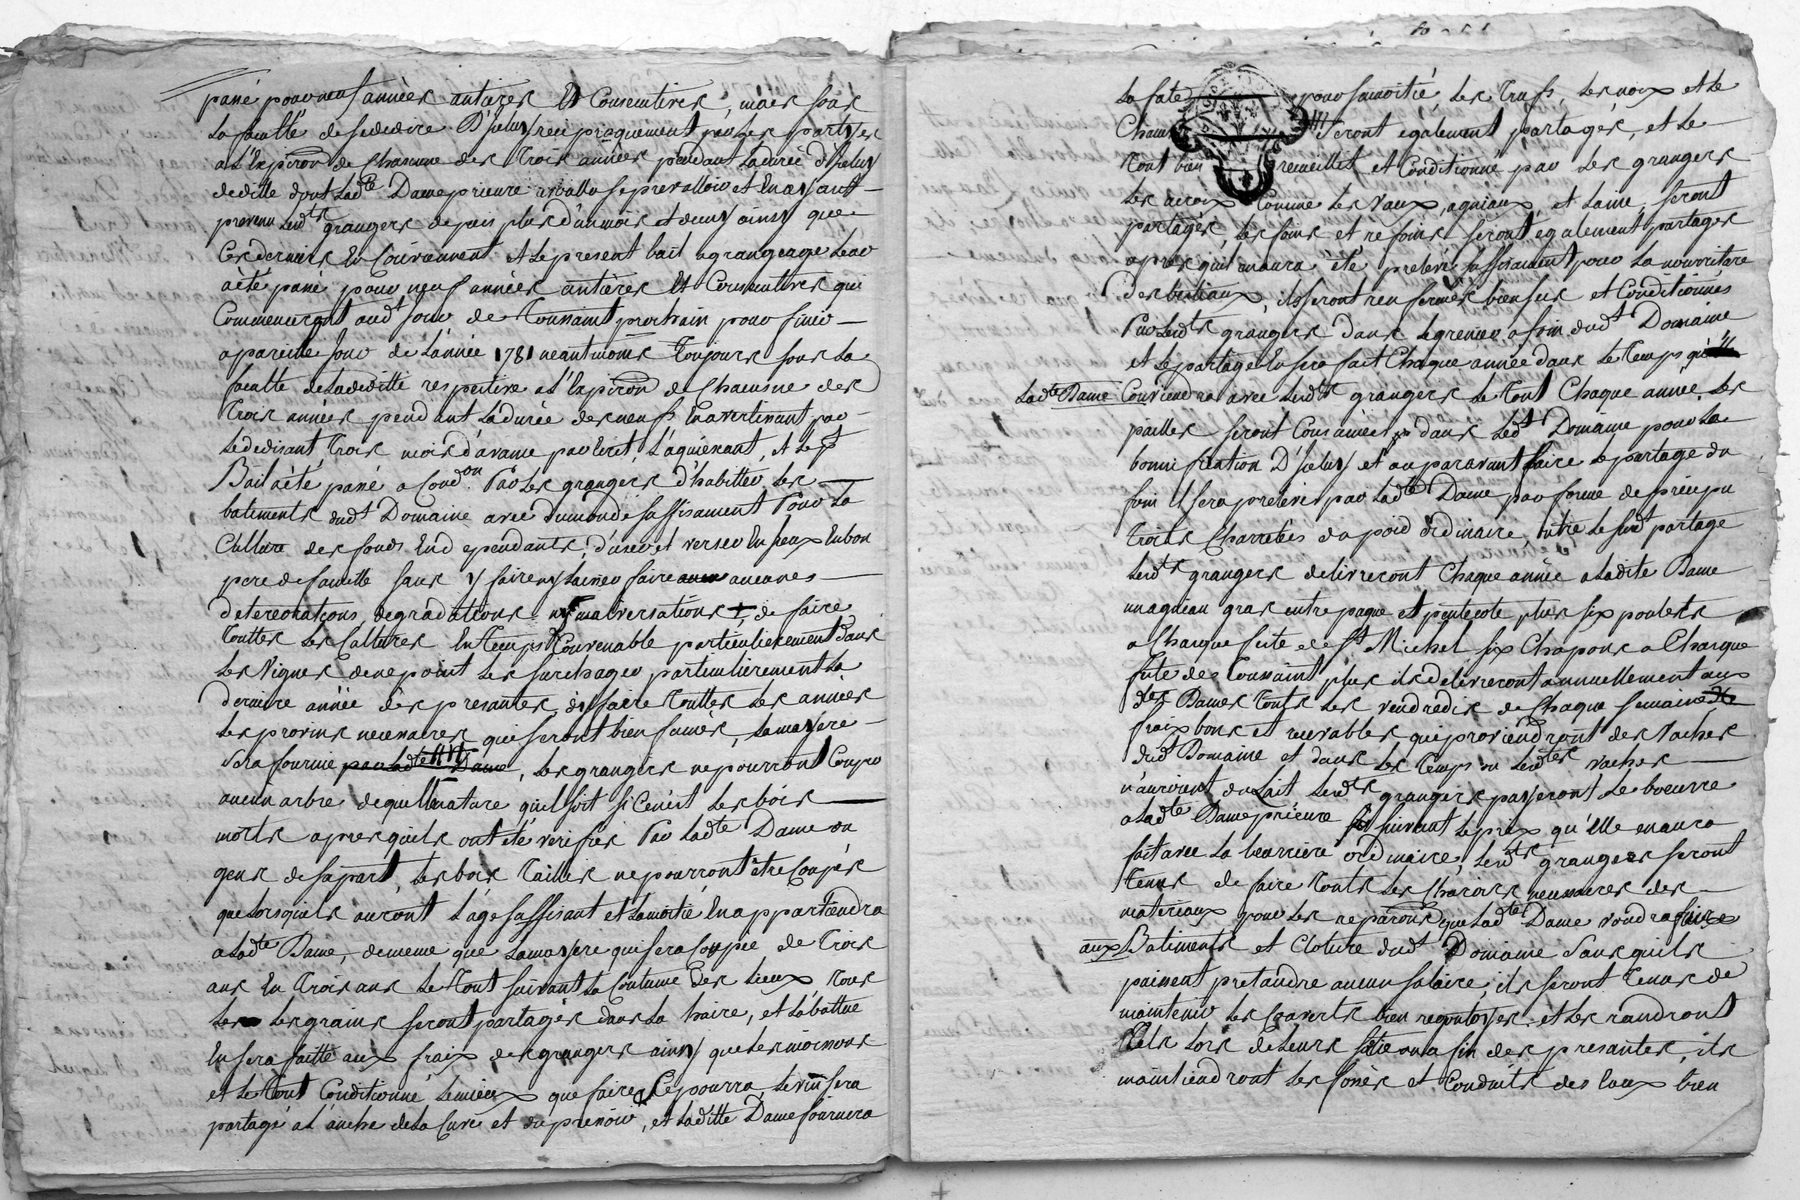 passé pour neuf années antieres Et Consecutives, mais sous
la faculté de se dedire D'iceluy reciproquement par les partyes
a L'Expiron de Chacune des trois années pendant la durée d'iceluy
deditte dont Ladte Dame prieure a voullu se prevalloir et En ayant
prevenu Lesdts grangers depuis plus d'un mois et demy ainsy que
Ces derniers En Conviennent Et le present bail a grangeage leur
a été passé pour neuf années antières Et Consecutives qui
Commenceront audt Jour de Toussaint prochain pour finir
a pareille Jour de L'année 1781 neantmoins Toujours sous La
faculté de la deditte respective a L'Expiron de Chacune des
Trois années pendant La durée des neuf En avertissant par
Le dedisant Trois mois d'avance par Ecrit, L'aquiessant, Et le pt
Bail a été passé a Condon Par les grangers d'habitter les
batiments dudt Domaine avec du monde suffisament Pour La
Culture des fonds En dependants, d'user et verser En iceux En bon
pere de famille sans y faire ny laisser faire aucunes
detereorations, degradations ny malversations +, de faire
touttes les Cultures En temps Convenable particulierement dans
Les Vignes de ne point Les surchager particulierement La
derniere année des presantes, d'y faire touttes Les années
Les provins necessaires qui seront bien fumés, La matyere
Sera fournie par Ladte Dame, Les grangers ne pourront Couper
aucun arbre de quelle nature qu'il soit si Ce n'est Les bois
morts apres qu'ils ont été verifiés Par Ladte Dame ou
gens de sa part, Les bois Taillis ne pourront être Coupés
que Lorsquils auront L'age suffisant et La moitié En appartiendra
a Ladte Dame, de meme que La matyere qui sera Coupée de Trois
ans En Trois ans Le Tout suivant La Coutume des Lieux Tous
Les Les grains seront partagés dans La haire, et La battue
En sera faitte aux fraix des grangers ainsy que Les moissons
et Le Tout Conditionné Le mieux que faire Ce pourra Le vin sera
partagé a L'anche de la Cuve et du presoir, et Laditte Dame fournira
La futé pour sa moitié, Les Truf, Les noix et Le
Chan seront egalement partagés, et Le
Tout bien recueillit et Conditionné par Les grangers
Les acrois Comme Les vaux, agniaux et Laine, seront
partagés, Les foins et refoins seront egalement partagés
apres qu'il en aura été prelevé suffisament pour La nourriture
des bestiaux, ils seront renfermés bien secs et Conditionnés
Par Lesdts grangers dans Le grenier a foin dudt Domaine
et Le partage En sera fait Chaque année dans Le Temps que
Ladte Dame Conviendra avec Lesdts grangers Le Tout Chaque année, Les
pailles seront Consumées dans Ledt Domaine pour La
bonnification D'iceluy et auparavant faire Le partage du
foin Il sera prelevé par Ladte Dame par forme de précipu
Trois Charretées du poid ordinaire, outre Le susdt partage
Lesdts grangers delivreront Chaque année a Ladite Dame
un agneau gras entre paque et pentecote plus six poulets
a Chaque fete de St Michel six Chapons a Chaque
fete de Toussaint plus ils delivreront annuellement aux
des Dames touts Les vendredis de Chaque semaine
fraix bons et recevables qui proviendront des vaches
dudt Domaine et dans Les Temps ou Lesdtes vaches
n'auroient du Lait Lesdts grangers payeront Le boeurre
a Ladte Dame prieure suivant Le prix qu'elle en aura
fait avec La beurriere ordinaire, Lesdts grangers seront
Tenus de faire touts Les charois necessaires des
materiaux pour Les reparons que Ladte Dame voudra faire
aux Batiments et Cloture dudt Domaine sans qu'ils
puissent pretandre aucun salaire, ils seront Tenus de
maintenir Les Couverts bien recoutoyés et Les randront
Tels Lors de Leurs sortie ou a fin des presantes, ils
maintiendront Les fossés et Conduits des Eaux bien